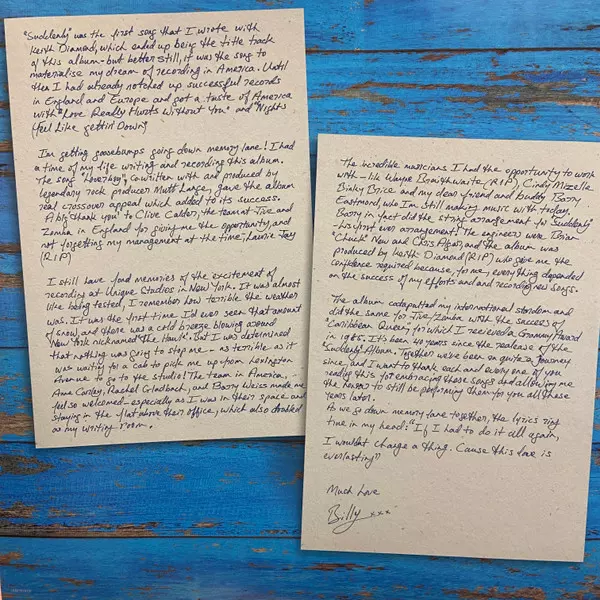 "Suddenly" was the first song that I wrote with
Keith Diamond, which ended up being the title track
of this album - but better still, it was the song to
materialise my dream of recording in America. Until
then I had already notched up successful records
in England and Europe and got a taste of America
with "Love Really Hurts Without You" and "Nights
(feel Like gettin Down)
I'm getting goosebumps going down memory lane! I had
a time of my life writing and recording this album.
The song "Loverboy", cowritten with and produced by
legendary rock producer Mutt Lange, gave the album
real crossover appeal which added to its success.
A big thank you to Clive Calder, the team at Jive and
Zomba in England for giving me the opportunity, and
not forgetting my management at the time; Laurie Jay
(R.I.P)
I still have fond memories of the excitement of
recording at Unique Studios in New York. It was almost
like being tested, I remember how terrible the weather
was. It was the first time I'd ever seen that amount
of snow, and there was a cold breeze blowing around
New York nicknamed the 'Hawk'. But I was determined
that nothing was going to stop me - as terrible as it
was waiting for a cab to pick me up from Lexington
Avenue to go to the studio! The team in America,
Ann Carley, Rachel and Barry Weiss made me
feel so welcomed - especially as I was in their space and
staying in the flat above their office, which also doubled
as my writing room.
The incredible musicians I had the opportunity to work
with - like Wayne Braithwaite (R.I.P), Cindy Mizelle
Binky Brice and my dear friend and buddy Barry
Eastmond, who I'm still making music with today,
Barry in fact did the string arrangement for "Suddenly"
- his first ever arrangement! The engineers were Brian
"Chuck" New and and the album was
produced by Keith Diamond (RIP) who gave me the
confidence required because, for me, everything depended
on the success of my efforts and and recording new songs.
The album catapulted my international stardom and
did the same for Jive/Zomba with the success of
"Caribbean Queen", for which I recieved a Grammy Award
in 1985. It's been 40 years since the realease of the
'Suddenly' Album. Together we've been on quite a journey
since, and I want to thank each and every one of you
reading this for embracing these songs and allowing me
the honour to still be performing them for you all these
years later.
As we go down memory lane together, the lyrics ring
time in my head: "If I had to do it all again,
I wouldn't change a thing. Cause this love is
everlasting"
Much Love
Billy xxx